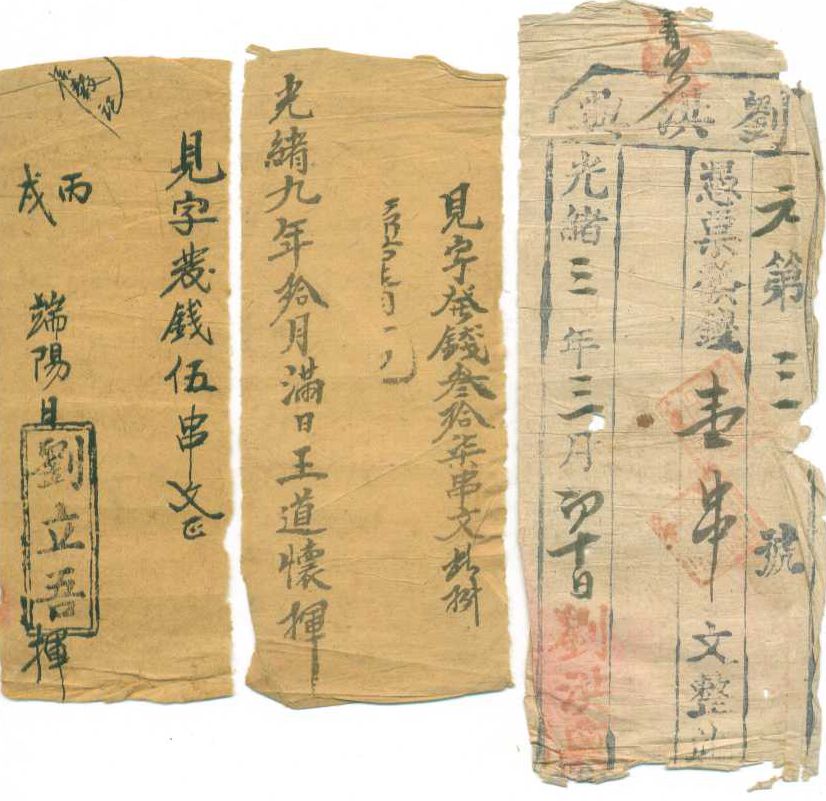 劉洪
元第三號
憑票發錢壹串文整
光緒三年三月初十日
劉洪
見字發錢叁拾柒串文此據
光緒九年拾月滿日王道懷揮
見字發錢伍串文正
丙戌 端陽日劉立吾揮